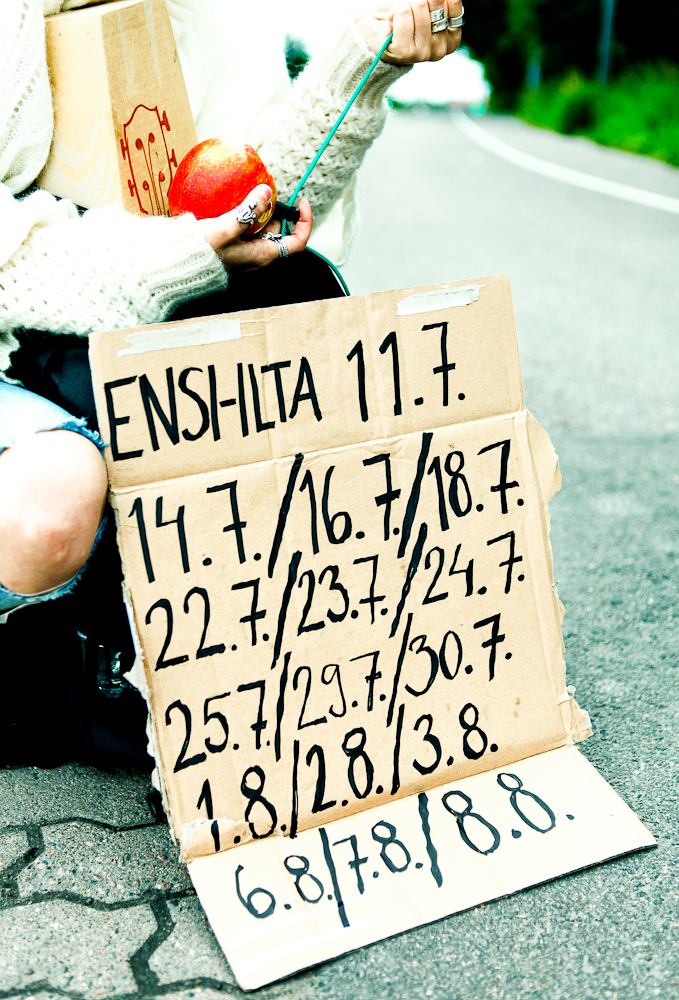 ENSI-ILTA 11.7.
14.7./16.7./18.7.
22.7./23.7./24.7.
25.7./29.7./30.7.
1.8./2.8./3.8.
6.8./7.8./8.8.